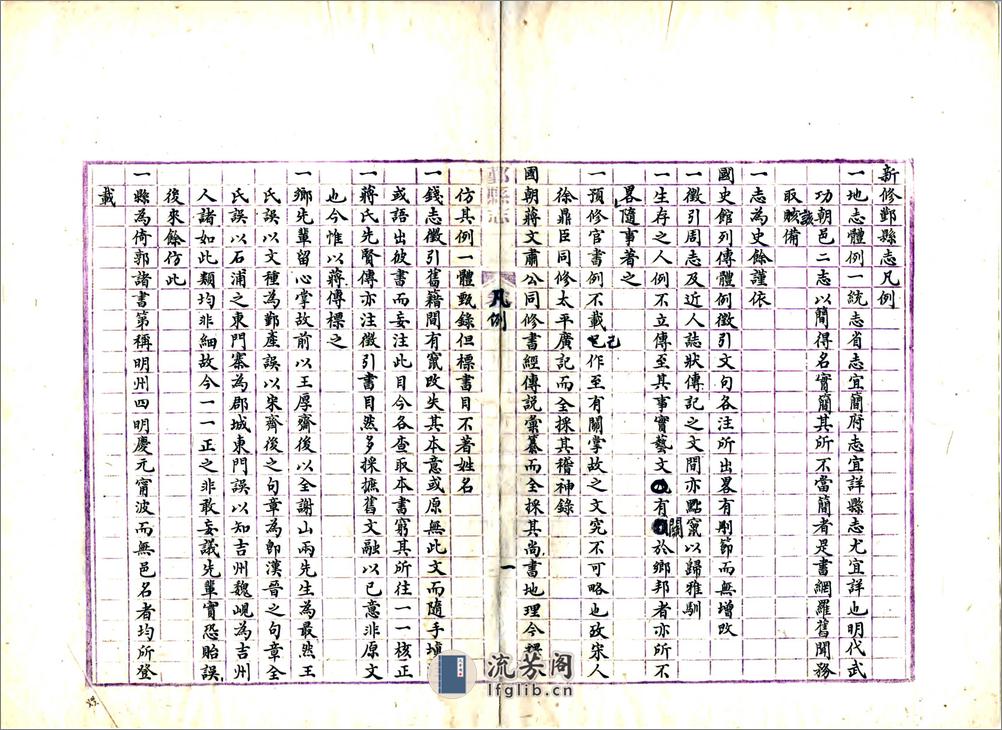 新修鄞縣志凡例
一地志體例一統志省志宜簡府志宜詳縣志尤宜詳也明代武
功朝邑二志以簡得名實簡其所不當簡者是書網羅舊聞務
取賅備
一志為史餘謹依
國史館列傳體例徵引文句各注所出畧有刪節而無增改
一徵引周志及近人誌狀傳記之文間亦點竄以歸雅馴
一生存之人例不立傳至其事實藝文有關於鄉邦者亦所不
畧隨事著之
一預修官書例不載己作至有關掌故之文究不可略也攷宋人
徐鼎臣同修太平廣記而全採其稽神錄
國朝蔣文肅公同修書經傳説彙纂而全採其尚書地理今釋
仿其例一體甄錄但標書目不著姓名
鄞縣志
凡例
一
一錢志徵引舊籍間有竄改失其本意或原無此文而隨手填
或語出彼書而妄注此目今各查取本書窮其所往一一核正
一蔣氏先賢傳亦注徵引書目然多採摭舊文融以己意非原文
也今惟以蔣傳標之
一鄉先輩留心掌故前以王厚齋後以全謝山兩先生為最然王
氏誤以文種為鄞產誤以宋齊後之句章為即漢晉之句章全
氏誤以石浦之東門寨為郡城東門誤以知吉州魏峴為吉州
人諸如此類均非細故今一一正之非敢妄議先輩實恐貽誤
後來餘仿此
一縣為倚郭諸書第稱明州四明慶元甯波而無邑名者均所登
載
流芳阁
lfglib.cn